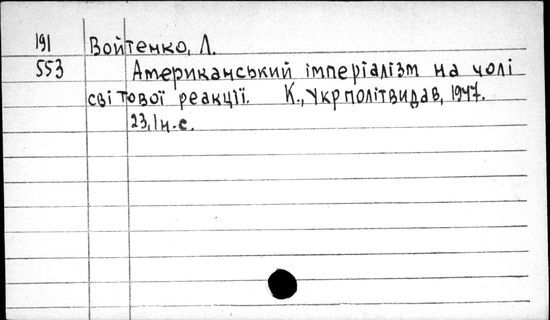 191 Войтенко, Л.
553 Американський імперіалізм на чолі
світової реакції. К., Укрполітвидав, 1947.
23, 1 н.с.